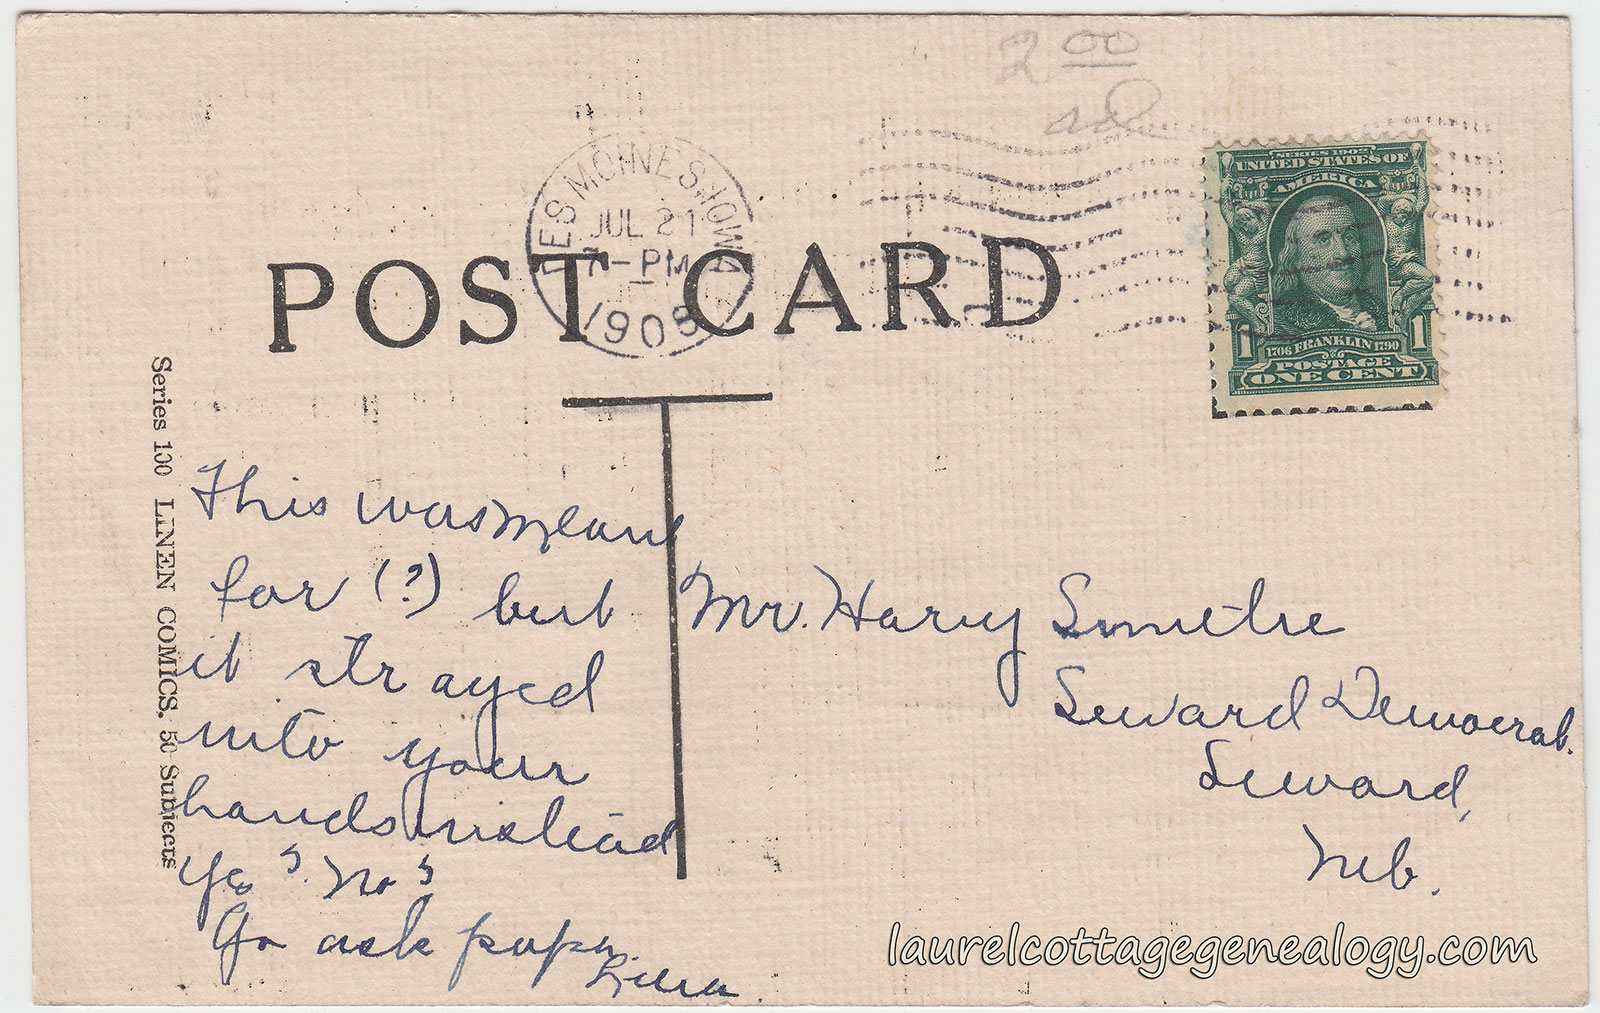 2 00
DES MOINES, IOWA
JUL 21
7-PM
1908
SERIES 1902
UNITED STATES OF
AMERICA
1 1
1706 FRANKLIN 1790
POSTAGE
ONE CENT
POST CARD
Series 100 LINEN COMICS, 50 Subjects
This was meant
for (?) but
it strayed
into your
hands instead
Yes? No?
Go ask papa.
Mr. Harry
Seward Democrat.
Seward,
Neb.
laurelcottagegenealogy.com